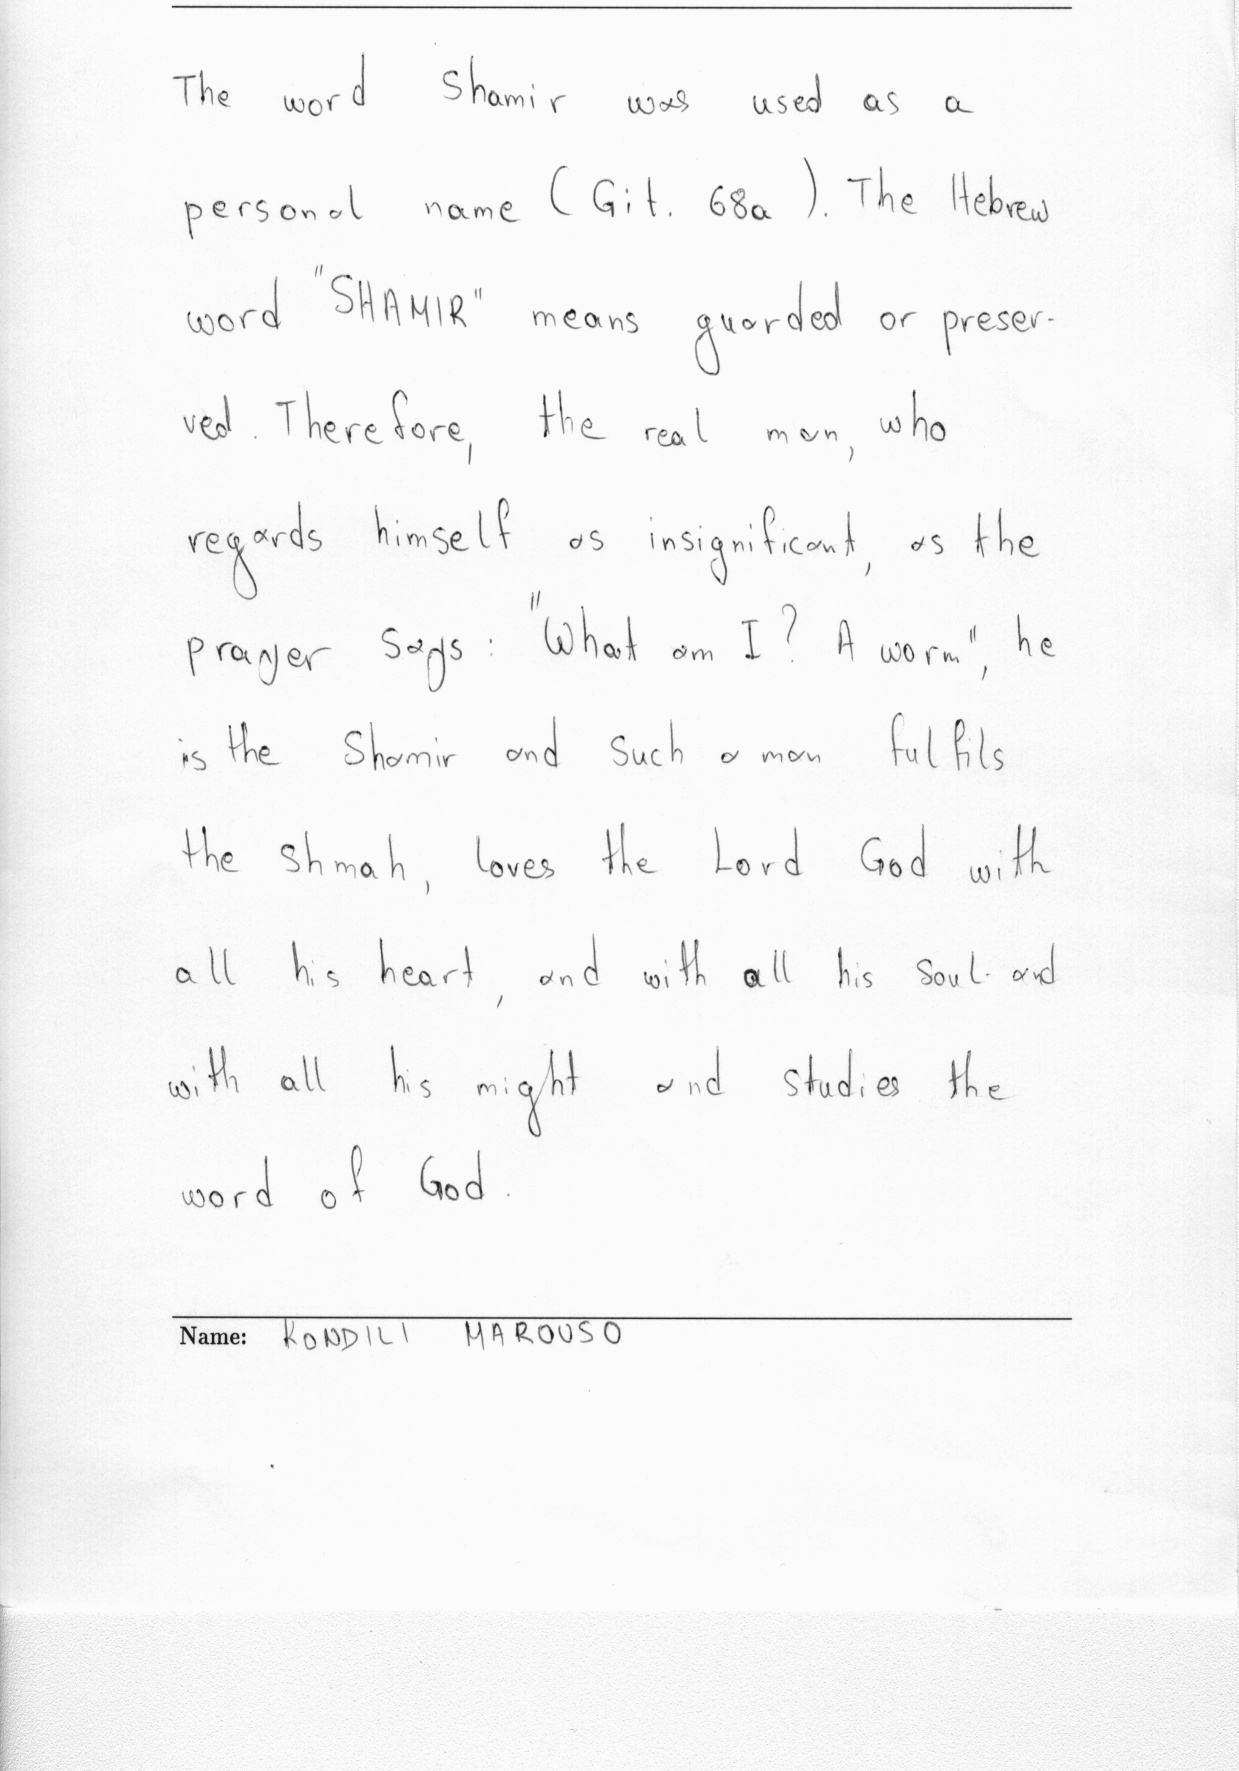 The word Shamir was used as a
personal name (Git. 68a). The Hebrew
word "SHAMIR" means guarded or preser-
ved. Therefore, the real man, who
regards himself as insignificant, as the
prayer says: "What am I? A worm", he
is the Shamir and such a man fulfils
the Shmah, loves the Lord God with
all his heart, and with all his soul and
with all his might and studies the
word of God.
Name: KONDILI MAROUSO